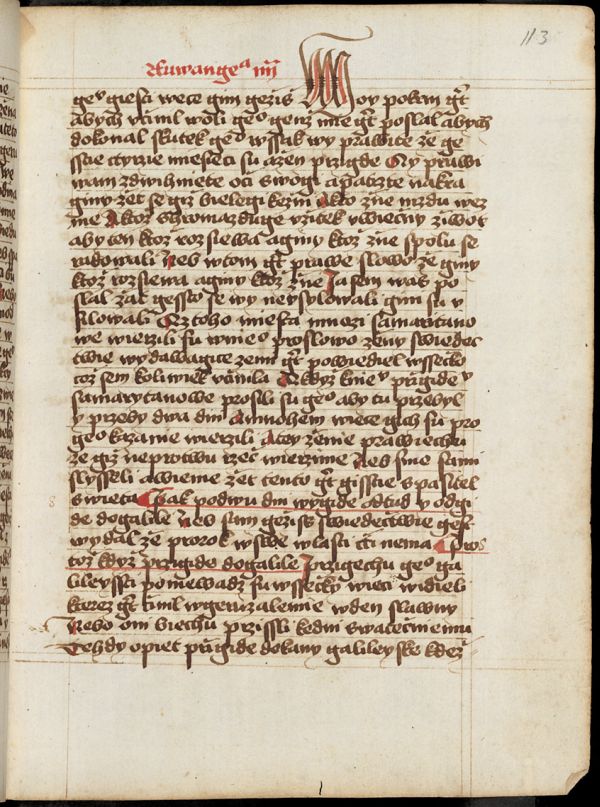 113
Ruwangeᵃ iiij
geᵒ giesti wece gim gezis Moy pokrm gᵗ
abych vcinil woli geᵒ genz mie gᵗ poslal abych
dokonal skutek geᵒ wssak wy prawite ze ge
sstie cztyrzie miesieci su a zen przigde Ay prawi
wam zdwihniete oci swogi a patrzte na kra
giny zet se giz bielegi ke zni A kto zne mzdu wez
me A ktoz schromazduge vzitek v wiecny ziwot
aby ten ktoz rozsiewa a giny ktoz zne spolu se
radowali Neb w tom gᵗ prawe slowo ze giny
ktoz rozsiewa a giny ktoz zne Ja sem was po
slal zat gessto se wy neysylowali gini su v
silowali A z toho miesta mnozi samaritano
we wierzili su w nieᵒ pro slowo zeny swiedec
twie wydawagice ze mi gᵗ powiediel wssecko
coz sem koliwiek vcinila A kdyz k nieᵘ przigidechu
samarytanowe prosili su geᵒ aby tu przebyl
y przeby dwa dni A mnohem wiece gich su pro
geᵒ kazanie wierzili A tey zenie prawiechu
ze giz ne pro twu rzec wierzime Neb sme sami
slysseli a wieme zet tento gᵗ gisstie spasitel
swieta Pak po dwu dni wygide odtud y odgi
de do galilee Neb sam gezis swiedectwie gest
wydal ze prorok w swe wlasti cti nema Protoz
kdyz przigide do galilee Przigechu geᵒ ga
lileyssci poniewadz su wssecky wieci widieli
kterez gᵗ cinil w geruzalemie w den slawny
Nebo oni biechu przissli ke dni swatecniemu
Tehdy opiet przigide do kany galileyske kdez